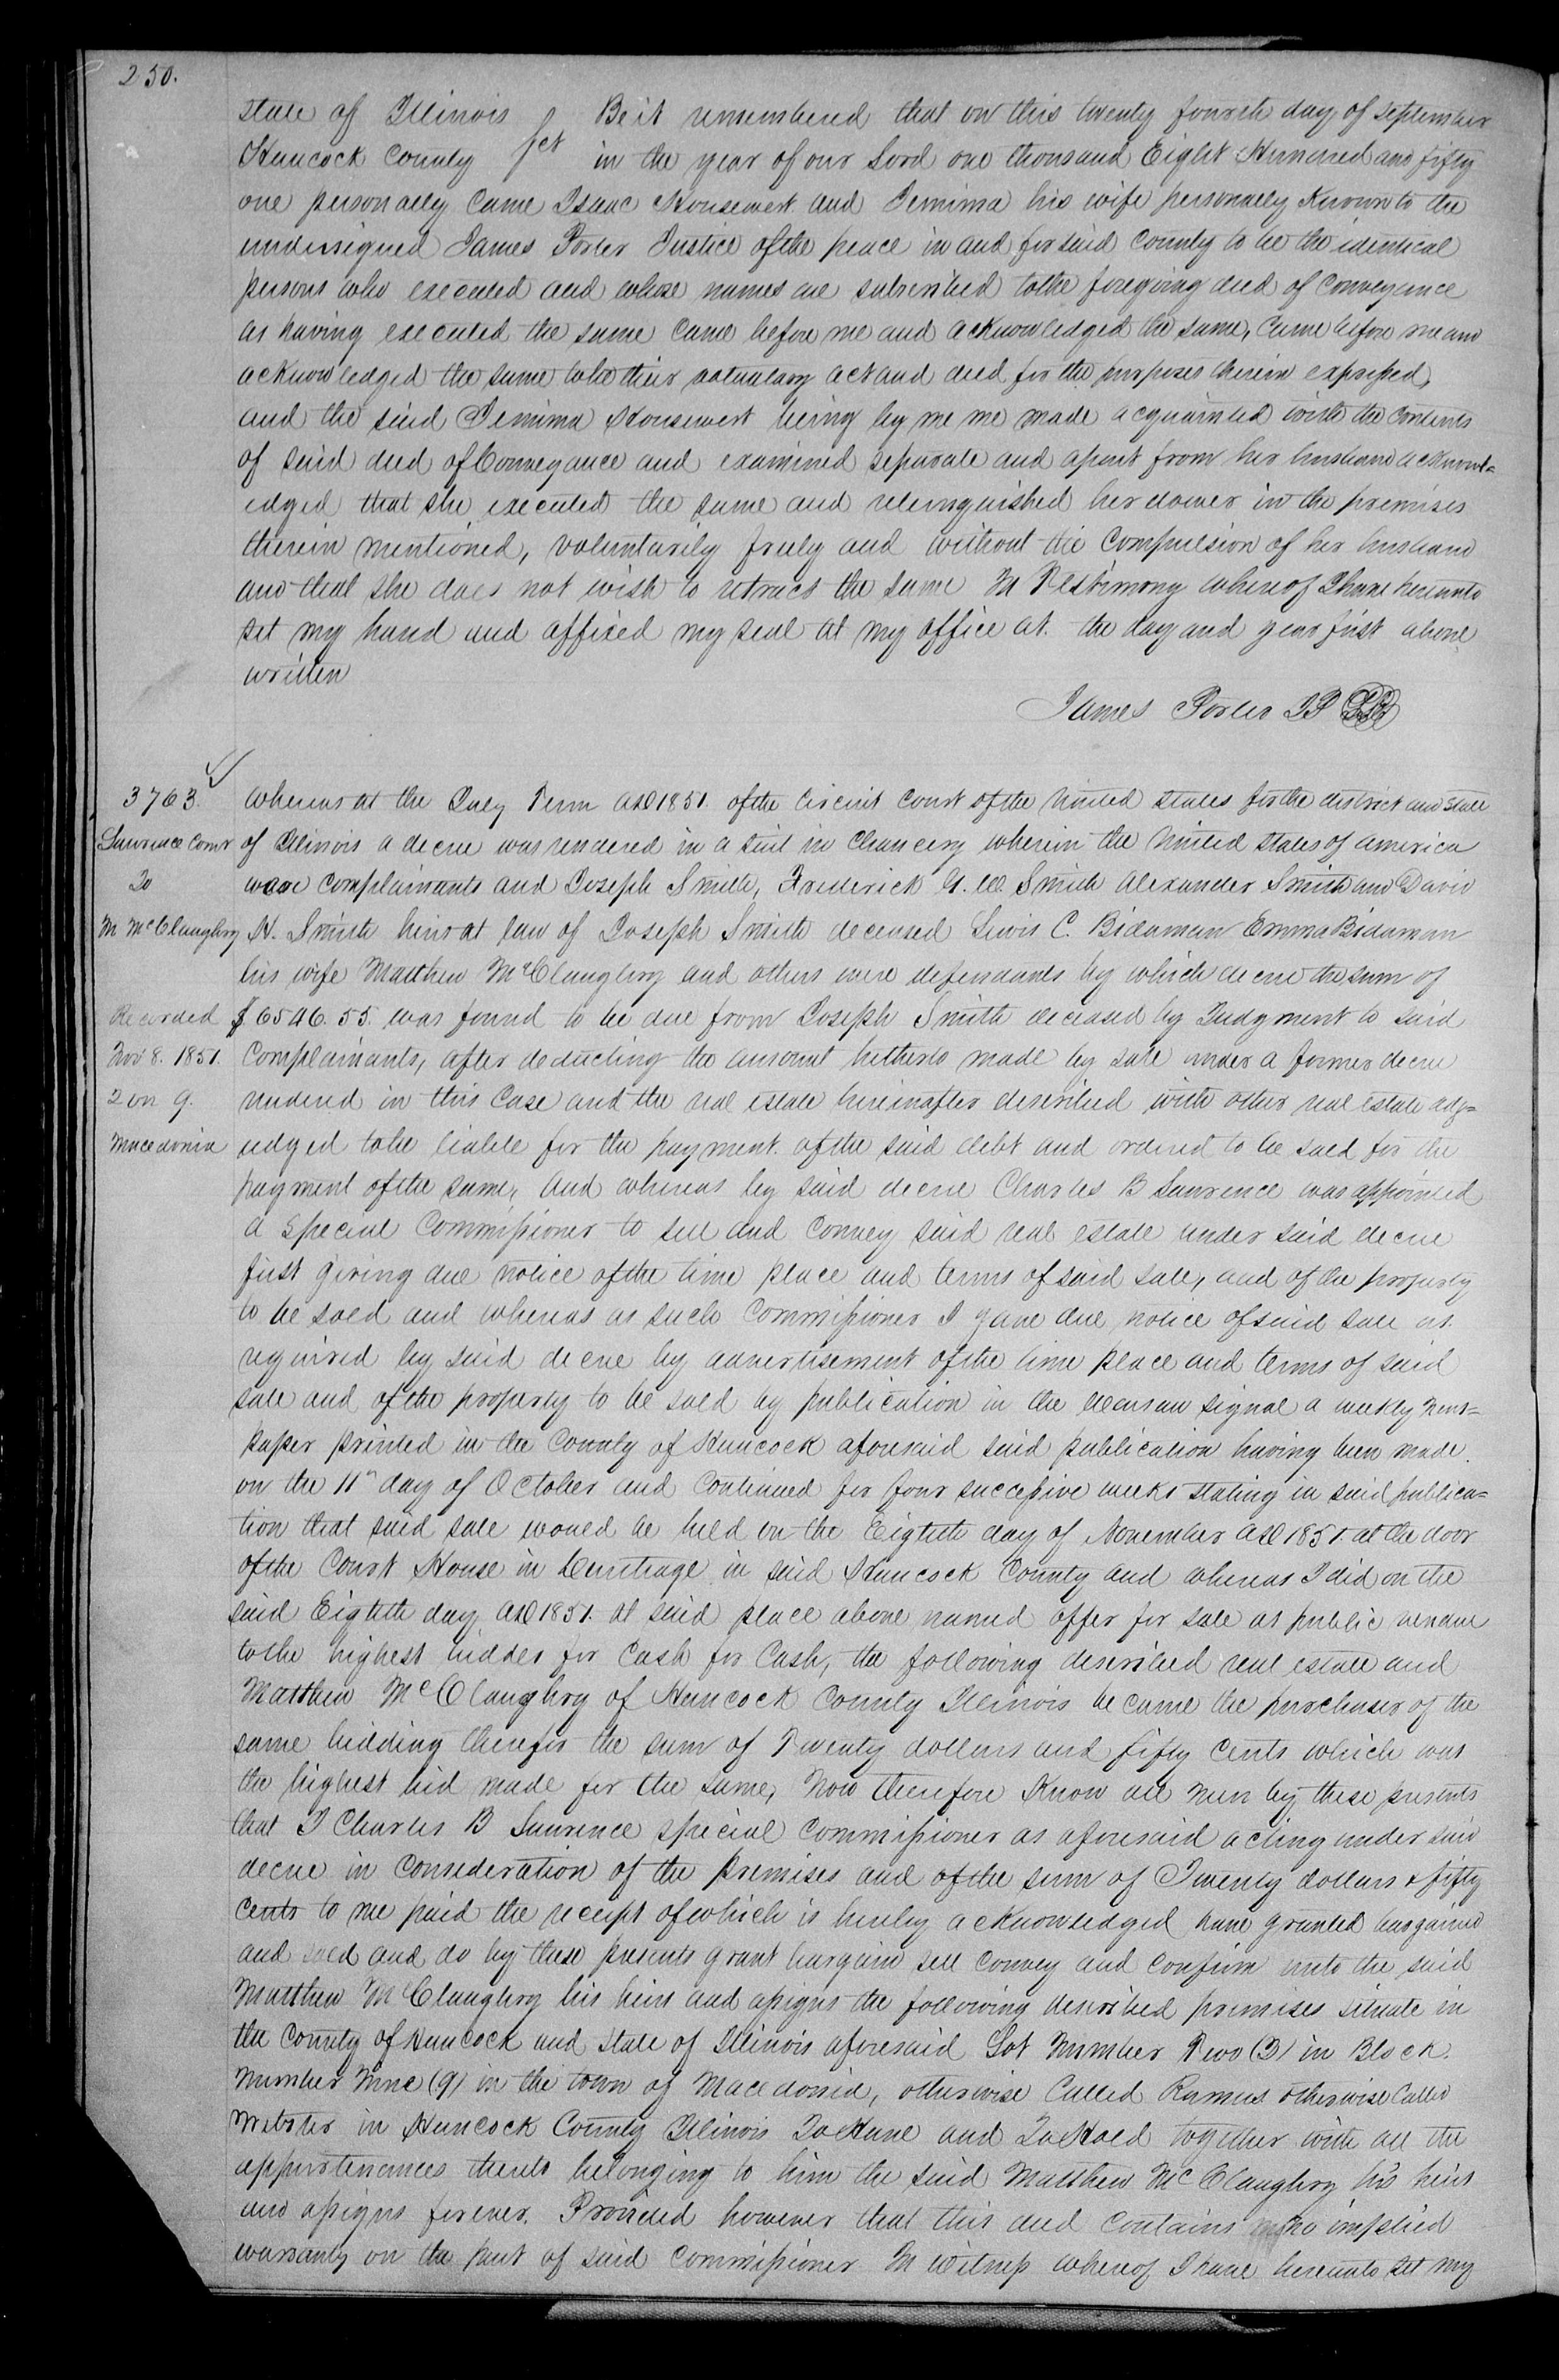 250.
State of Illinois } sct Be it remembered that on this twenty fourth day of September
Hancock County in the year of our Lord one thousand Eight Hundred and fifty
one personally Came Isaac Housewert and Jemima his wife personally Known to the
undersigned James Porter Justice of the peace in and for said County to be the identical
persons who executed and whose names are subscribed to the foregoing deed of Conveyance
as having executed the same Came before me and acknowledged the same, Came before me and
acknowledged the same to be their voluntary act and deed for the purposes therein expressed,
and the said Jemima Housewert being by me me made acquainted with the Contents
of said deed of Conveyance and examined separate and apart from her husband acknowl=
edged that she executed the same and relinquished her dower in the premises
therein mentioned, voluntarily freely and without the Compulsion of her husband
and that she does not wish to retract the same In Testimony whereof I have hereunto
set my hand and affixed my seal at my office at. the day and year first above
written
James Porter JP
3763. Whereas at the July Term AD 1851. of the Circuit Court of the United States for the district and State
Lawrence Comr of Illinois a decree was rendered in a suit in Chancery wherein the United States of America
To were Complainants and Joseph Smith, Frederick G. W. Smith Alexander Smith and David
M McClaughry H. Smith heirs at law of Joseph Smith deceased Lewis C. Bidaman Emma Bidaman
his wife Matthew McClaughry and others were defendants by which decree the sum of
Recorded $6546.55. was found to be due from Joseph Smith deceased by Judgment to said
Nov 8. 1851. Complainants, after deducting the amount hitherto made by sale under a former decree
2 on 9. rendered in this Case and the real estate hereinafter described with other real estate adj=
Macedonia udged to be liable for the payment. of the said debt and ordered to be sold for the
payment of the same, And whereas by said decree Charles B Lawrence was appointed
a Special Commissioner to sell and Convey said real estate under said decree
first giving due notice of the time place and terms of said sale, and of the property
to be sold and whereas as such Commissioner I gave due notice of said sale as.
required by said decree by advertisement of the time place and terms of said
sale and of the property to be sold by publication in the Warsaw Signal a weekly News=
paper printed in the County of Hancock aforesaid said publication having been made.
on the 11th day of October and Continued for four successive weeks stating in said publica=
tion that said sale would be held on the Eighth day of November AD 1851. at the door
of the Court House in Carthage in said Hancock County and whereas I did on the
said Eighth day AD 1851. at said place above named offer for sale at public vendue
to the highest bidder for Cash for Cash, the following described real estate and
Matthew McClaughry of Hancock County Illinois became the purchaser of the
same bidding therefor the sum of Twenty dollars and fifty Cents which was
the highest bid made for the same, Now therefore Know all men by these presents
that I Charles B Lawrence special Commissioner as aforesaid acting under said
decree in Consideration of the premises and of the sum of Twenty dollars & fifty
Cents to me paid the receipt of which is hereby acknowledged have granted bargained
and sold and do by these presents grant bargain sell Convey and Confirm unto the said
Matthew McClaughry his heirs and assigns the following described premises situate in
the County of Hancock and State of Illinois aforesaid Lot Number Two (3) in Block.
Number Nine (9) in the town of Macedonia, otherwise Called Ramus otherwise Called
Webster in Hancock County Illinois To Have and To Hold together with all the
appurtenances thereto belonging to him the said Matthew McClaughry his heirs
and assigns forever. Provided however that this deed Contains no implied
warranty on the part of said Commissioner In Witness whereof I have hereunto set my